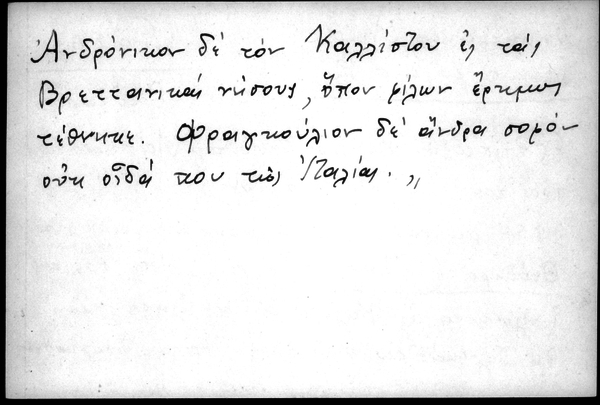 Ἀνδρόνικον δέ τόν Καλλίστου ἐς τάς
Βρεττανικάς νήσους, ὅπου φίλων ἔρημος
τέθνηκε. Φραγκούλιον δέ ἄνδρα σοφόν
οὐκ οἶδά που τῆς Ἰταλίας. „